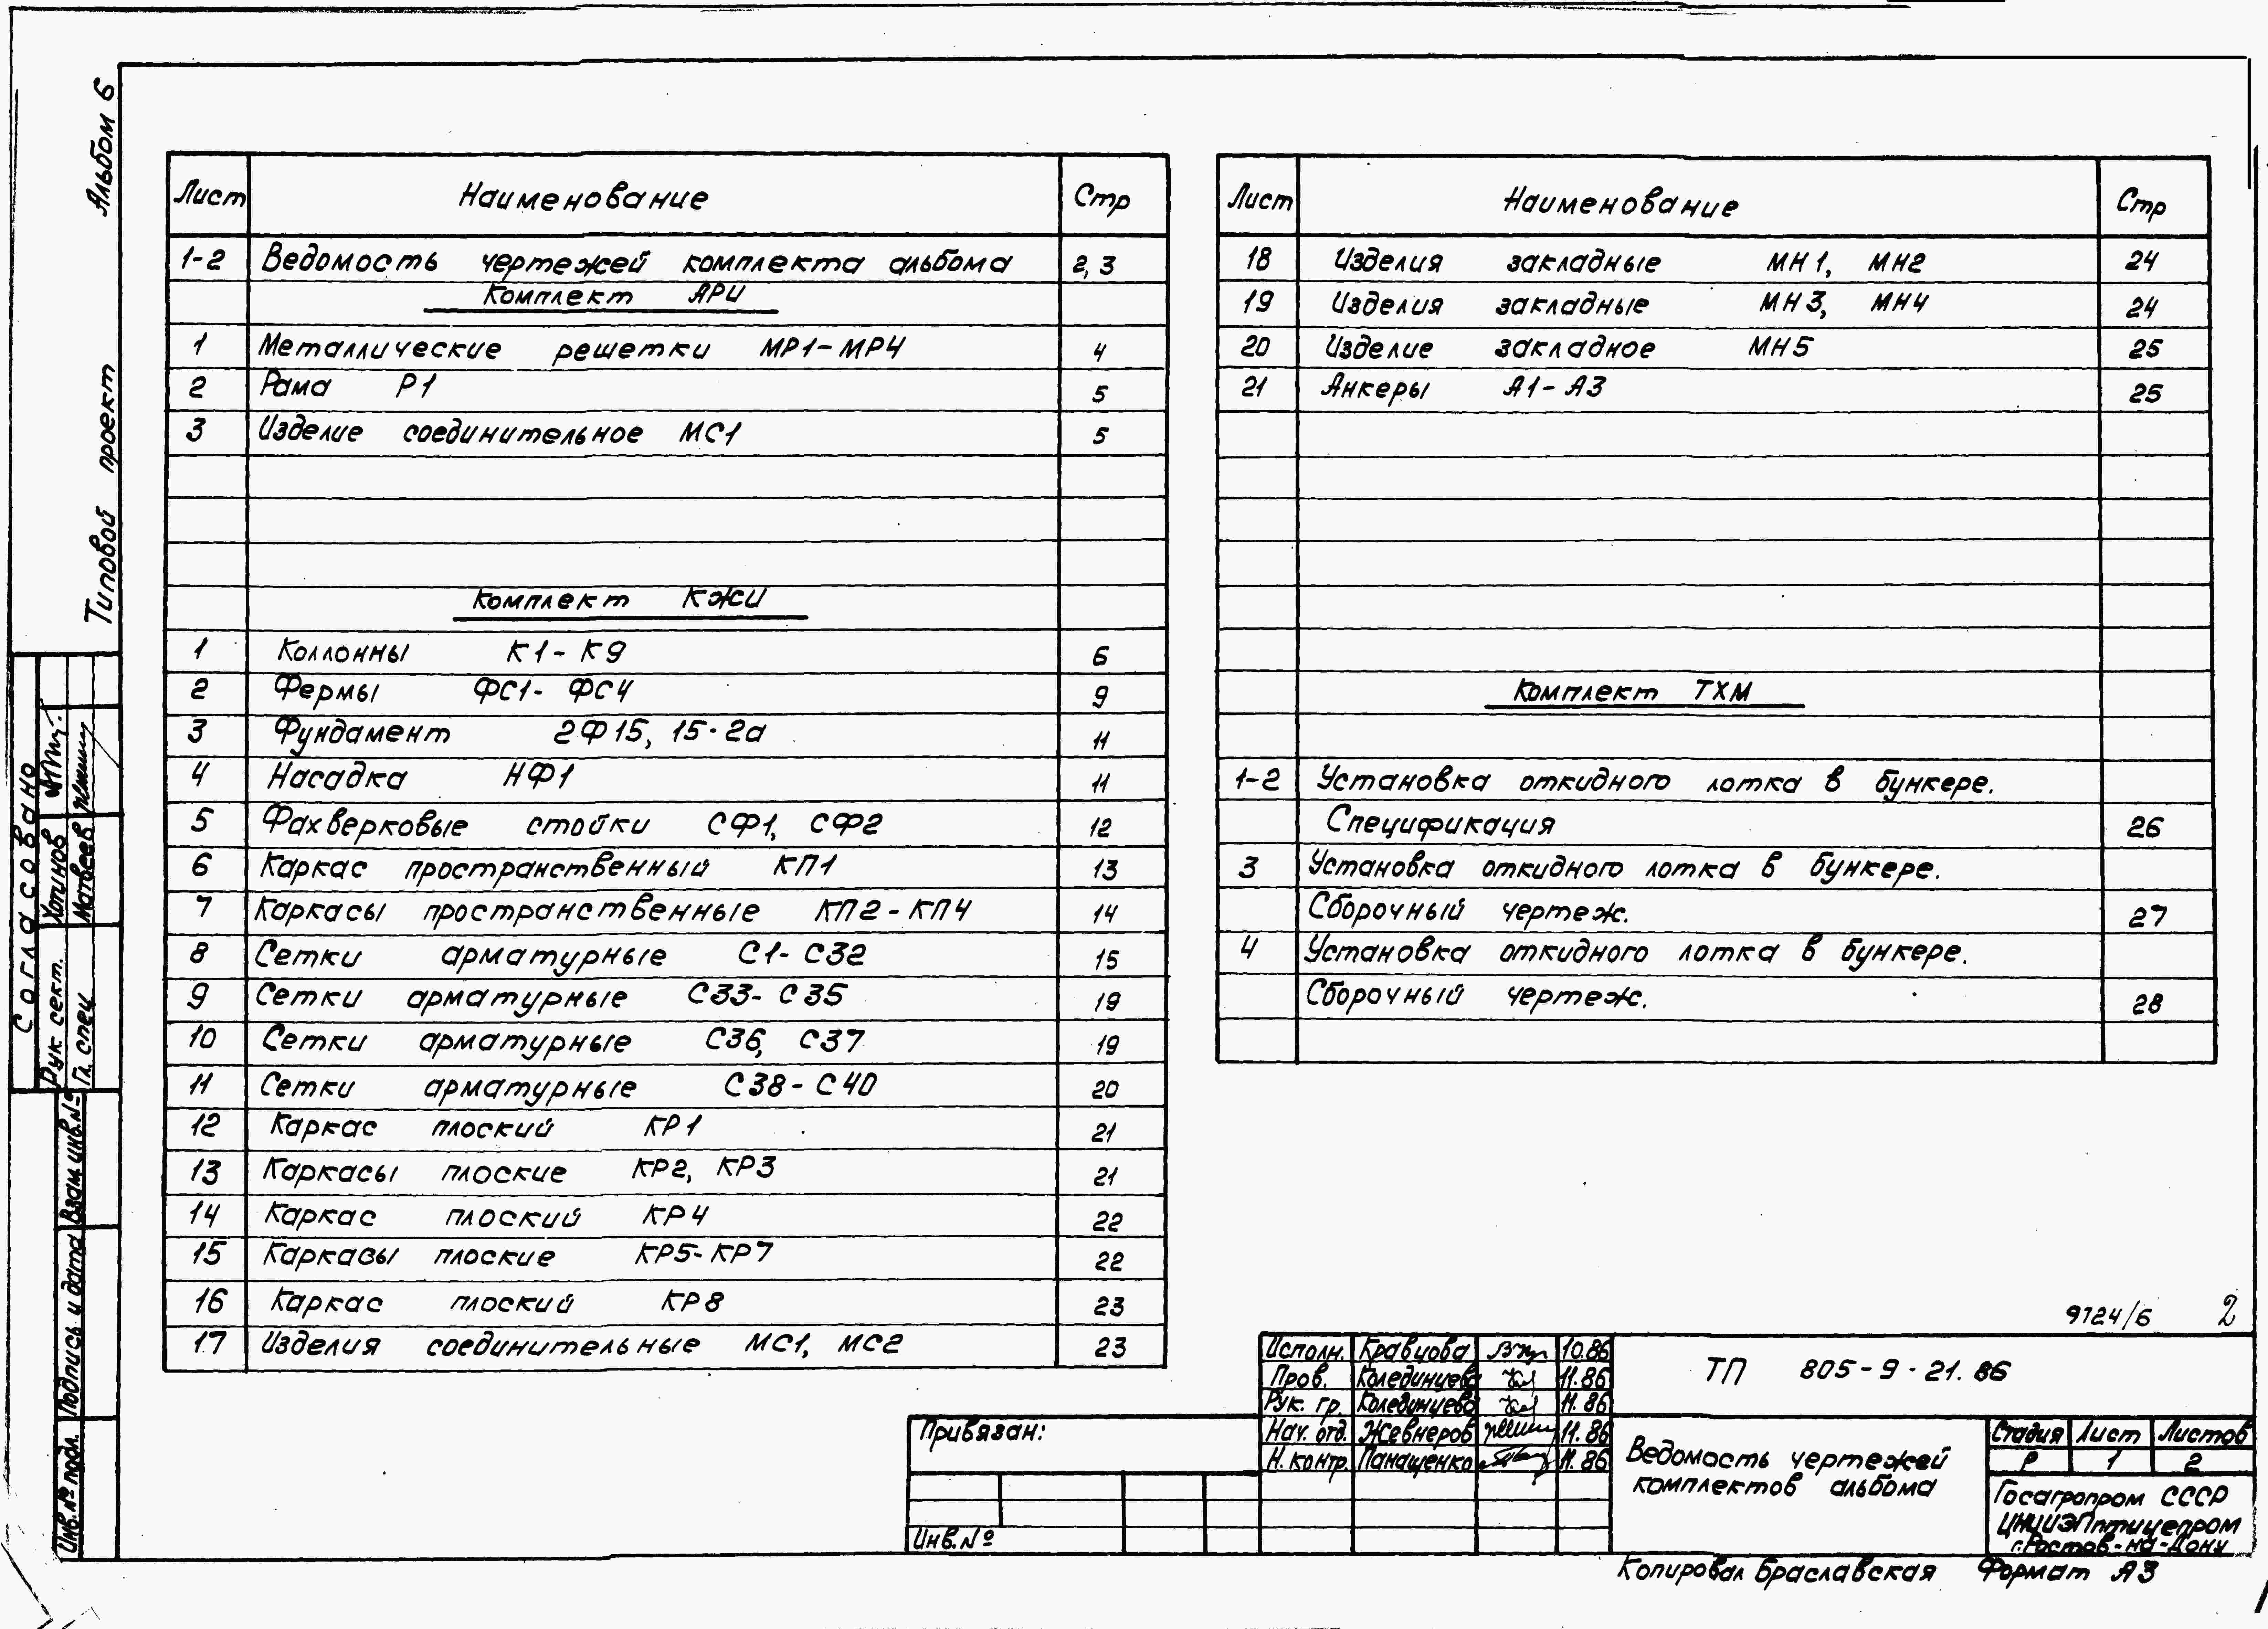 Альбом 6
Типовой проект
Лист Наименование Стр
1-2 Ведомость чертежей комплекта альбома 2,3
Комплект АРИ
1 Металлические решетки МР1-МР4 4
2 Рама Р1 5
3 Изделие соединительное МС1 5
Комплект КЖИ
1 Коллонны К1-К9 6
2 Фермы ФС1-ФС4 9
3 Фундамент 2Ф15, 15-2а 11
4 Насадка НФ1 11
5 Фахверковые стойки СФ1, СФ2 12
6 Каркас пространственный КП1 13
7 Каркасы пространственные КП2-КП4 14
8 Сетки арматурные С1-С32 15
9 Сетки арматурные С33-С35 19
10 Сетки арматурные С36, С37 19
11 Сетки арматурные С38-С40 20
12 Каркас плоский КР1 21
13 Каркасы плоские КР2, КР3 21
14 Каркас плоский КР4 22
15 Каркасы плоские КР5-КР7 22
16 Каркас плоский КР8 23
17 Изделия соединительные МС1, МС2 23
Лист Наименование Стр
18 Изделия закладные МН1, МН2 24
19 Изделия закладные МН3, МН4 24
20 Изделие закладное МН5 25
21 Анкеры А1-А3 25
Комплект ТХМ
1-2 Установка откидного лотка в бункере.
Спецификация 26
3 Установка откидного лотка в бункере.
Сборочный чертеж. 27
4 Установка откидного лотка в бункере.
Сборочный чертеж. 28
Согласовано
Рук. сект. Хотинов
Гл. спец Матвеев
Взам. инв. №
Подпись и дата
Инв. № подл.
9724/6 2
Исполн. Кравцова 10.86
Пров. Колединцева 11.86
Рук. гр. Колединцева 11.86
Нач. отд. Жевнеров 11.86
Н. контр. Панащенко 11.86
Привязан:
Инв. №
ТП 805-9-21.86
Ведомость чертежей
комплектов альбома
Стадия Лист Листов
Р 1 2
Госагропром СССР
ЦНИИЭПптицепром
г. Ростов-на-Дону
Копировал Браславская Формат А3